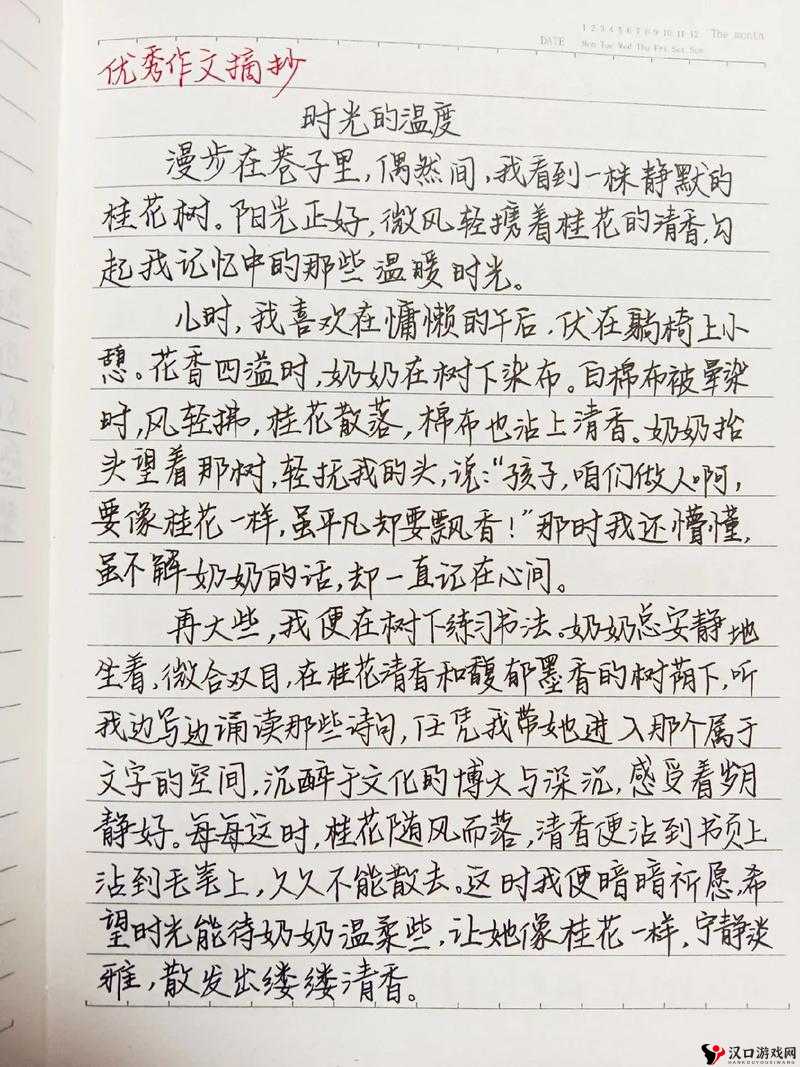 1 2 3 4 5 6 7 8 9 10 11 12 The month
DATE Mon Tue Wed Thu Fri Sat Sun
优秀作文摘抄
时光的温度
漫步在巷子里，偶然间，我看到一株静默的
桂花树。阳光正好，微风轻携着桂花的清香，勾
起我记忆中的那些温暖时光。
儿时，我喜欢在慵懒的午后，伏在躺椅上小
憩。花香四溢时，奶奶在树下染布。白棉布被晕染
时，风轻拂，桂花散落，棉布也沾上清香。奶奶抬
头望着那树，轻抚我的头，说：“孩子，咱们做人啊，
要像桂花一样，虽平凡却要飘香！”那时我还懵懂，
虽不解奶奶的话，却一直记在心间。
再大些，我便在树下练习书法。奶奶总安静地
坐着，微合双目，在桂花清香和馥郁墨香的树荫下，听
我边写边诵读那些诗句，任凭我带她进入那个属于
文字的空间，沉醉于文化的博大与深沉，感受着岁月
静好。每每这时，桂花随风而落，清香便沾到书页上
沾到毛笔上，久久不能散去。这时我便暗暗祈愿，希
望时光能待奶奶温柔些，让她像桂花一样，宁静淡
雅，散发出缕缕清香。
汉口游戏网
HANKOUYOUXIWANG